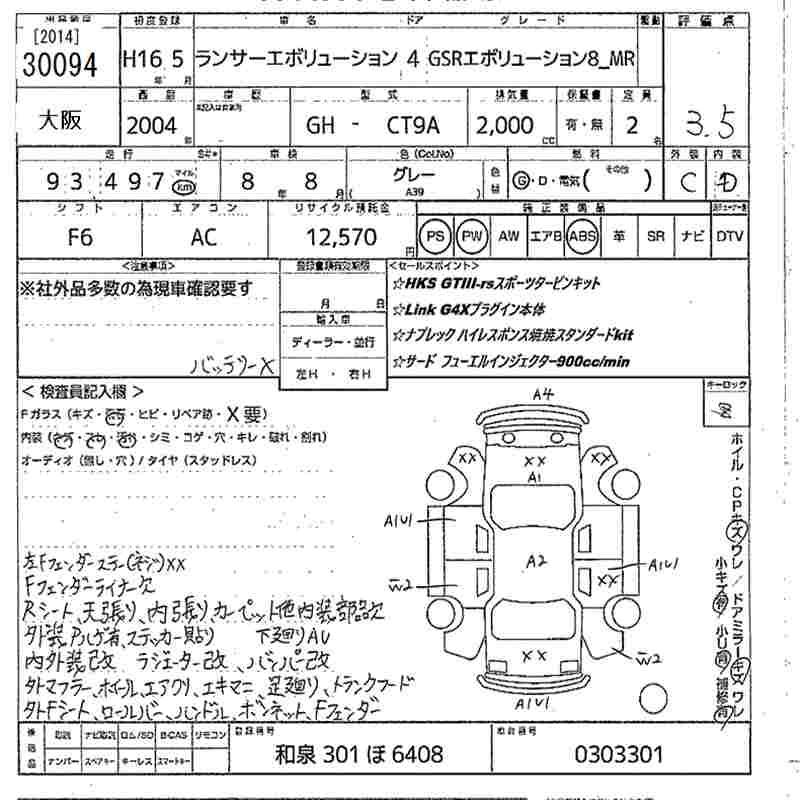 初度登録 車名 ドア グレード 駆動 評価点
[2014]
30094 H16 5 ランサーエボリューション 4 GSRエボリューション8_MR
年 月
西暦 車歴 型式 排気量 保証書 定員
大阪 2004 年 GH - CT9A 2,000 cc 有・無 2 名 3.5
走行 車検 色(Col.No) 燃料 外装 内装
93,497 マイル km 8年 8月 グレー ( A39 ) 色替 G・D・電気( その他 ) C D
シフト エアコン リサイクル預託金 純正装備品
F6 AC 12,570 円 PS PW AW エアB ABS 革 SR ナビ DTV
<注意事項> 登録書類有効期限 <セールスポイント>
※社外品多数の為現車確認要す
月 日
☆HKS GTIII-rsスポーツタービンキット
輸入車
☆Link G4Xプラグイン本体
ディーラー・並行
☆ナプレック ハイレスポンス燃焼スタンダードkit
バッテリーX 左H ・ 右H
☆サード フューエルインジェクター900cc/min
< 検査員記入欄 >
キーロック
Fガラス (キズ・ ・ヒビ・リペア跡・X要)
内装 ( ・シミ・コゲ・穴・キレ・破れ・割れ)
オーディオ (無し・穴) / タイヤ (スタッドレス)
A4
XX XX XX
A1
A1U1 A2 A1U1
W2 XX
XX W2
A1U1
ホイル・CPキズワレ/ドアミラーキズワレ
小キズ有/小U有/補修有
左Fフェンダーステー(ネジ)XX
Fフェンダーライナー欠
Rシート、天張り、内張り、カーペット他内装部品欠
外装アルゲ有、ステッカー貼り 下廻りAU
内外装改 ラジエーター改、バンパー改
外マフラー、ホイール、エアクリ、エキマニ、足廻り、トランクフード
外Fシート、ロールバー、ハンドル、ボンネット、Fフェンダー
後送品 取説 ナビ取説 ロム/SD B-CAS リモコン 登録番号 車台番号
ナンバー スペアキー キーレス スマートキー 和泉 301 ほ 6408 0303301